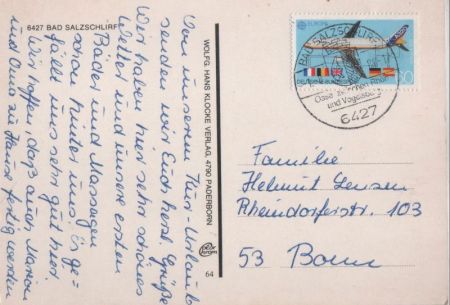 6427 BAD SALZSCHLIRF
Von unserem Kur-Urlaub
senden wir Euch herzl. Grüße
Wir haben hier sehr schönes
Wetter und unsere ersten
Bäder und Massagen
schon hinter uns. Es ge-
fällt uns sehr gut hier.
Wir hoffen, daß auch Marion
und Oma zu Hause fertig werden
WOLFG. HANS KLOCKE VERLAG, 4790 PADERBORN
64
EUROPA
60
BAD SALZSCHLIRF
Oase zwischen Rhön
und Vogelsberg
6427
Familie
Helmut Jensen
Rheindorferstr. 103
53 Bonn